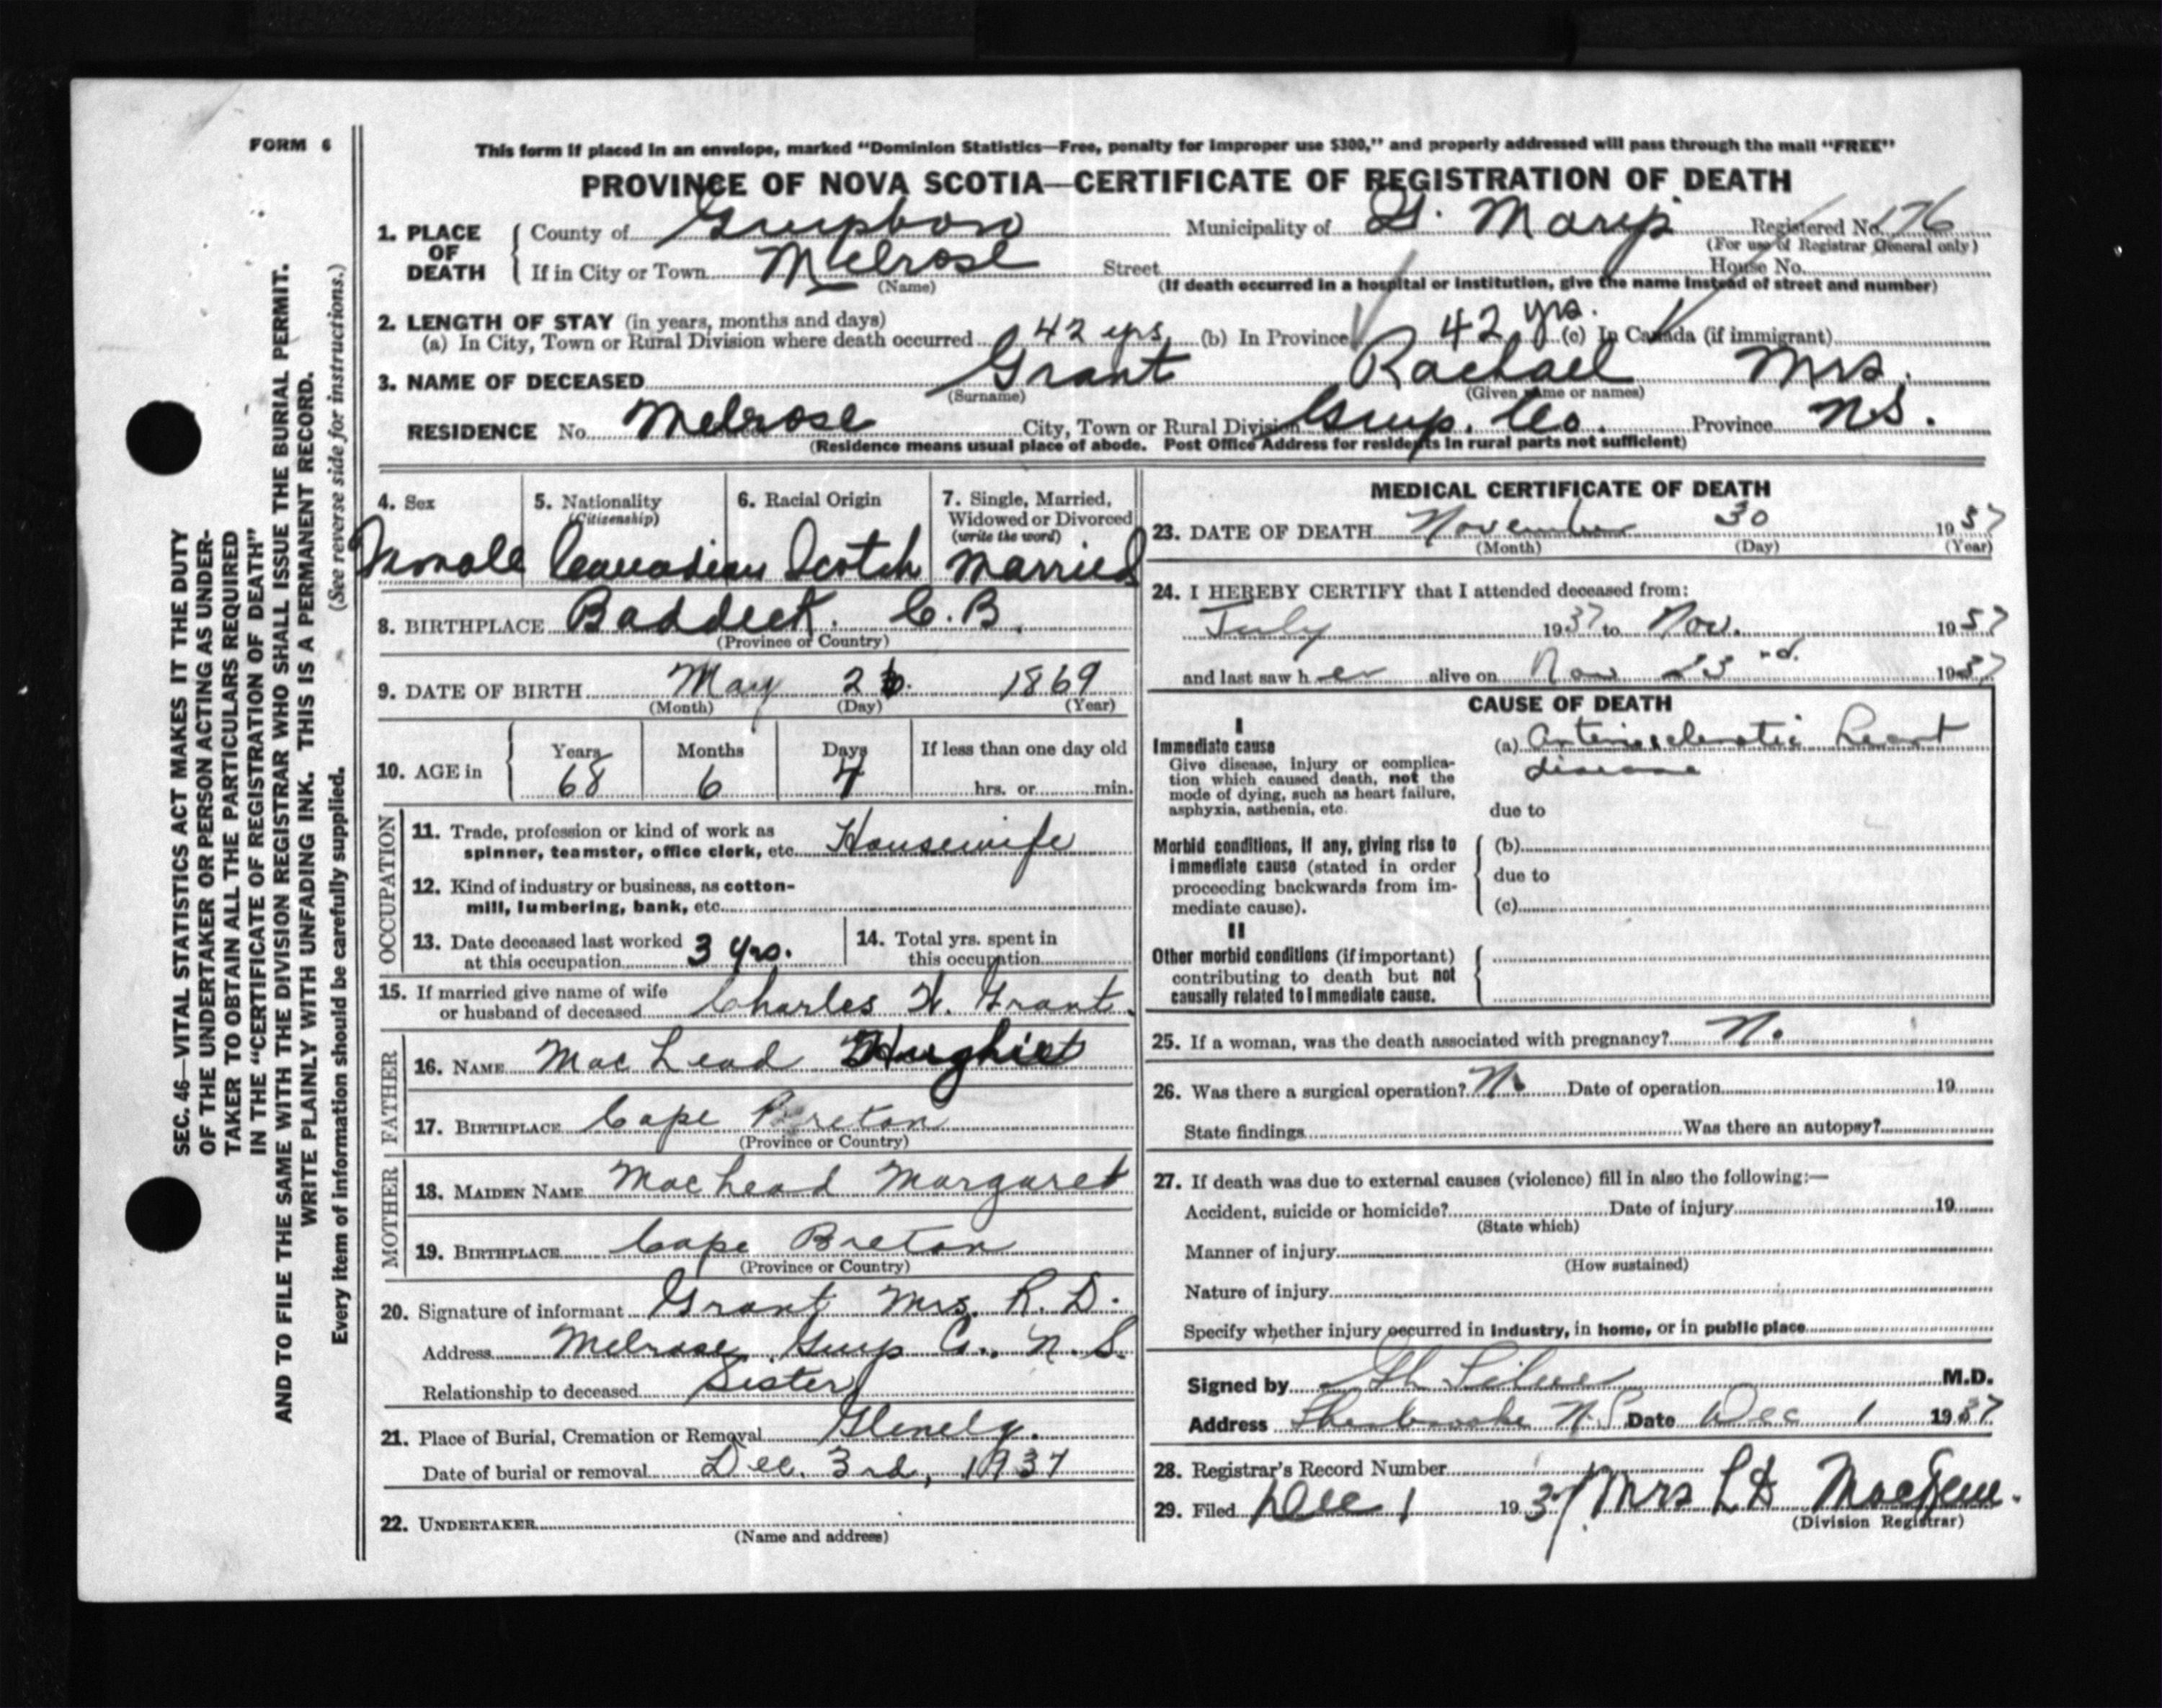 FORM 6
This form if placed in an envelope, marked "Dominion Statistics—Free, penalty for improper use $300," and properly addressed will pass through the mail "FREE"
PROVINCE OF NOVA SCOTIA—CERTIFICATE OF REGISTRATION OF DEATH
1. PLACE OF DEATH
County of Guysboro Municipality of St. Marys Registered No. 176
(For use of Registrar General only)
If in City or Town Melrose Street House No.
(Name) (If death occurred in a hospital or institution, give the name instead of street and number)
2. LENGTH OF STAY (in years, months and days)
(a) In City, Town or Rural Division where death occurred 42 yrs. (b) In Province 42 yrs. (c) In Canada (if immigrant)
3. NAME OF DECEASED Grant Rachael Mrs.
(Surname) (Given name or names)
RESIDENCE No. Melrose City, Town or Rural Division Guys. Co. Province N.S.
(Residence means usual place of abode. Post Office Address for residents in rural parts not sufficient)
SEC. 46—VITAL STATISTICS ACT MAKES IT THE DUTY
OF THE UNDERTAKER OR PERSON ACTING AS UNDER-
TAKER TO OBTAIN ALL THE PARTICULARS REQUIRED
IN THE "CERTIFICATE OF REGISTRATION OF DEATH"
AND TO FILE THE SAME WITH THE DIVISION REGISTRAR WHO SHALL ISSUE THE BURIAL PERMIT.
WRITE PLAINLY WITH UNFADING INK. THIS IS A PERMANENT RECORD.
Every item of information should be carefully supplied. (See reverse side for instructions.)
4. Sex
5. Nationality
(Citizenship)
6. Racial Origin
7. Single, Married,
Widowed or Divorced
(write the word)
Canadian Scotch Married
8. BIRTHPLACE Baddeck. C.B.
(Province or Country)
9. DATE OF BIRTH May 1869
(Month) (Day) (Year)
10. AGE in
Years Months Days If less than one day old
68 6 4 hrs. or min.
OCCUPATION
11. Trade, profession or kind of work as
spinner, teamster, office clerk, etc. Housewife
12. Kind of industry or business, as cotton-
mill, lumbering, bank, etc.
13. Date deceased last worked
at this occupation 3 yrs.
14. Total yrs. spent in
this occupation
15. If married give name of wife
or husband of deceased Charles W. Grant.
FATHER
16. NAME MacLeod Hughie
17. BIRTHPLACE Cape Breton
(Province or Country)
MOTHER
18. MAIDEN NAME MacLeod Margaret
19. BIRTHPLACE Cape Breton
(Province or Country)
20. Signature of informant Grant Mrs. R. D.
Address Melrose Guys Co., N.S.
Relationship to deceased Sister
21. Place of Burial, Cremation or Removal Glenelg.
Date of burial or removal Dec. 3rd, 1937
22. UNDERTAKER
(Name and address)
MEDICAL CERTIFICATE OF DEATH
23. DATE OF DEATH November 30 1937
(Month) (Day) (Year)
24. I HEREBY CERTIFY that I attended deceased from:
July 1937 to Nov. 1937
and last saw her alive on Nov 23rd. 1937
CAUSE OF DEATH
I
Immediate cause
Give disease, injury or complica-
tion which caused death, not the
mode of dying, such as heart failure,
asphyxia, asthenia, etc.
(a) Arteriosclerotic heart
disease
due to
Morbid conditions, if any, giving rise to
immediate cause (stated in order
proceeding backwards from im-
mediate cause).
(b)
due to
(c)
II
Other morbid conditions (if important)
contributing to death but not
causally related to immediate cause.
25. If a woman, was the death associated with pregnancy? No
26. Was there a surgical operation? No Date of operation 19
State findings Was there an autopsy?
27. If death was due to external causes (violence) fill in also the following:—
Accident, suicide or homicide? Date of injury 19
(State which)
Manner of injury
(How sustained)
Nature of injury
Specify whether injury occurred in industry, in home, or in public place
Signed by M.D.
Address Sherbrooke N.S. Date Dec 1 1937
28. Registrar's Record Number
29. Filed Dec 1 1937 Mrs
(Division Registrar)